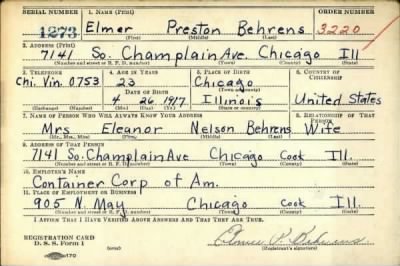 SERIAL NUMBER 1. NAME (Print) ORDER NUMBER
1273 Elmer Preston Behrens 3220
(First) (Middle) (Last)
2. ADDRESS (Print)
7141 So. Champlain Ave. Chicago Ill
(Number and street or R. F. D. number) (Town) (County) (State)
3. TELEPHONE 4. AGE IN YEARS 5. PLACE OF BIRTH 6. COUNTRY OF CITIZENSHIP
Chi. Vin. 0753 23 Chicago
DATE OF BIRTH (Town or county)
4 26 1917 Illinois United States
(Mo.) (Day) (Yr.) (State or country)
7. NAME OF PERSON WHO WILL ALWAYS KNOW YOUR ADDRESS 8. RELATIONSHIP OF THAT PERSON
Mrs Eleanor Nelson Behrens Wife
(Mr., Mrs., Miss) (First) (Middle) (Last)
9. ADDRESS OF THAT PERSON
7141 So. Champlain Ave Chicago Cook Ill.
(Number and street or R. F. D. number) (Town) (County) (State)
10. EMPLOYER'S NAME
Container Corp of Am.
11. PLACE OF EMPLOYMENT OR BUSINESS
905 N. May Chicago Cook Ill.
(Number and street or R. F. D. number) (Town) (County) (State)
I AFFIRM THAT I HAVE VERIFIED ABOVE ANSWERS AND THAT THEY ARE TRUE.
REGISTRATION CARD
D. S. S. Form 1 Elmer P. Behrens
(Registrant's signature)